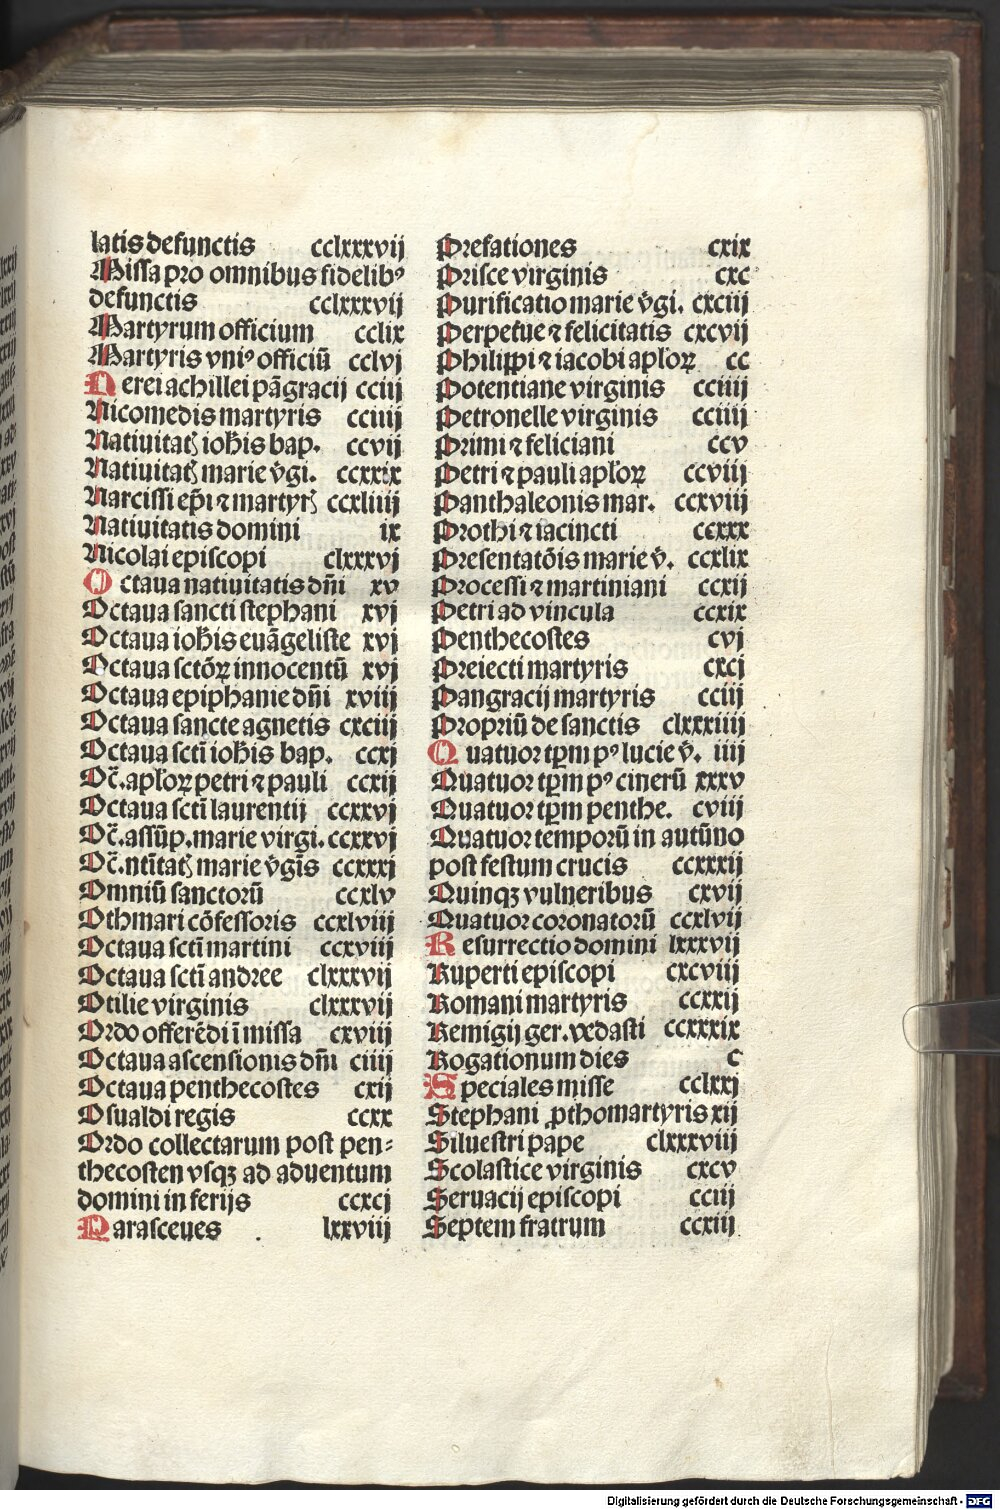 latis defunctis cclxxxvij
Missa pro omnibus fidelibꝰ
defunctis cclxxxvij
Martyrum officium cclix
Martyris vniꝰ officiū cclvj
Nerei achillei pāgracij cciij
Nicomedis martyris cciiij
Natiuitatꝭ ioh̄is bap. ccvij
Natiuitatꝭ marie v̄gi. ccxxix
Narcissi ep̄i ⁊ martyrꝭ ccxliiij
Natiuitatis domini ix
Nicolai episcopi clxxxvj
Octaua natiuitatis dn̄i xv
Octaua sancti stephani xvj
Octaua ioh̄is euāgeliste xvj
Octaua sctōꝝ innocentū xvj
Octaua epiphanie dn̄i xviij
Octaua sancte agnetis cxciij
Octaua scti̅ ioh̄is bap. ccxj
Oc̄. apl'oꝝ petri ⁊ pauli ccxij
Octaua scti̅ laurentij ccxxvj
Oc̄. assūp. marie virgi. ccxxvj
Oc̄. nti̅tatꝭ marie v̄gis̄ ccxxxj
Omniū sanctorū ccxlv
Othmari cōfessoris ccxlviij
Octaua scti̅ martini ccxviij
Octaua scti̅ andree clxxxvij
Otilie virginis clxxxvij
Ordo offerēdi ī missa cxviij
Octaua ascensionis dn̄i ciiij
Octaua penthecostes cxij
Osualdi regis ccxx
Ordo collectarum post pen⸗
thecosten vsqꝫ ad aduentum
domini in ferijs ccxcj
Parasceues lxxviij
Prefationes cxix
Prisce virginis cxc
Purificatio marie v̄gi. cxciij
Perpetue ⁊ felicitatis cxcvij
Philippi ⁊ iacobi apl'oꝝ cc
Potentiane virginis cciiij
Petronelle virginis cciiij
Primi ⁊ feliciani ccv
Petri ⁊ pauli apl'oꝝ ccviij
Panthaleonis mar. ccxviij
Prothi ⁊ iacincti ccxxx
Presentatōis marie v̄. ccxlix
Processi ⁊ martiniani ccxij
Petri ad vincula ccxix
Penthecostes cvj
Preiecti martyris cxcj
Pangracij martyris cciij
Propriū de sanctis clxxxiiij
Quatuor tp̄m pꝰ lucie v̄. iiij
Quatuor tp̄m pꝰ cinerū xxxv
Quatuor tp̄m penthe. cviij
Quatuor temporū in autūno
post festum crucis ccxxxij
Quinqꝫ vulneribus cxvij
Quatuor coronatorū ccxlvij
Resurrectio domini lxxxvij
Ruperti episcopi cxcviij
Romani martyris ccxxij
Remigij ger. vedasti ccxxxix
Rogationum dies c
Speciales misse cclxxj
Stephani ꝓthomartyris xij
Siluestri pape clxxxviij
Scolastice virginis cxcv
Seruacij episcopi cciij
Septem fratrum ccxiij
Digitalisierung gefördert durch die Deutsche Forschungsgemeinschaft - DFG